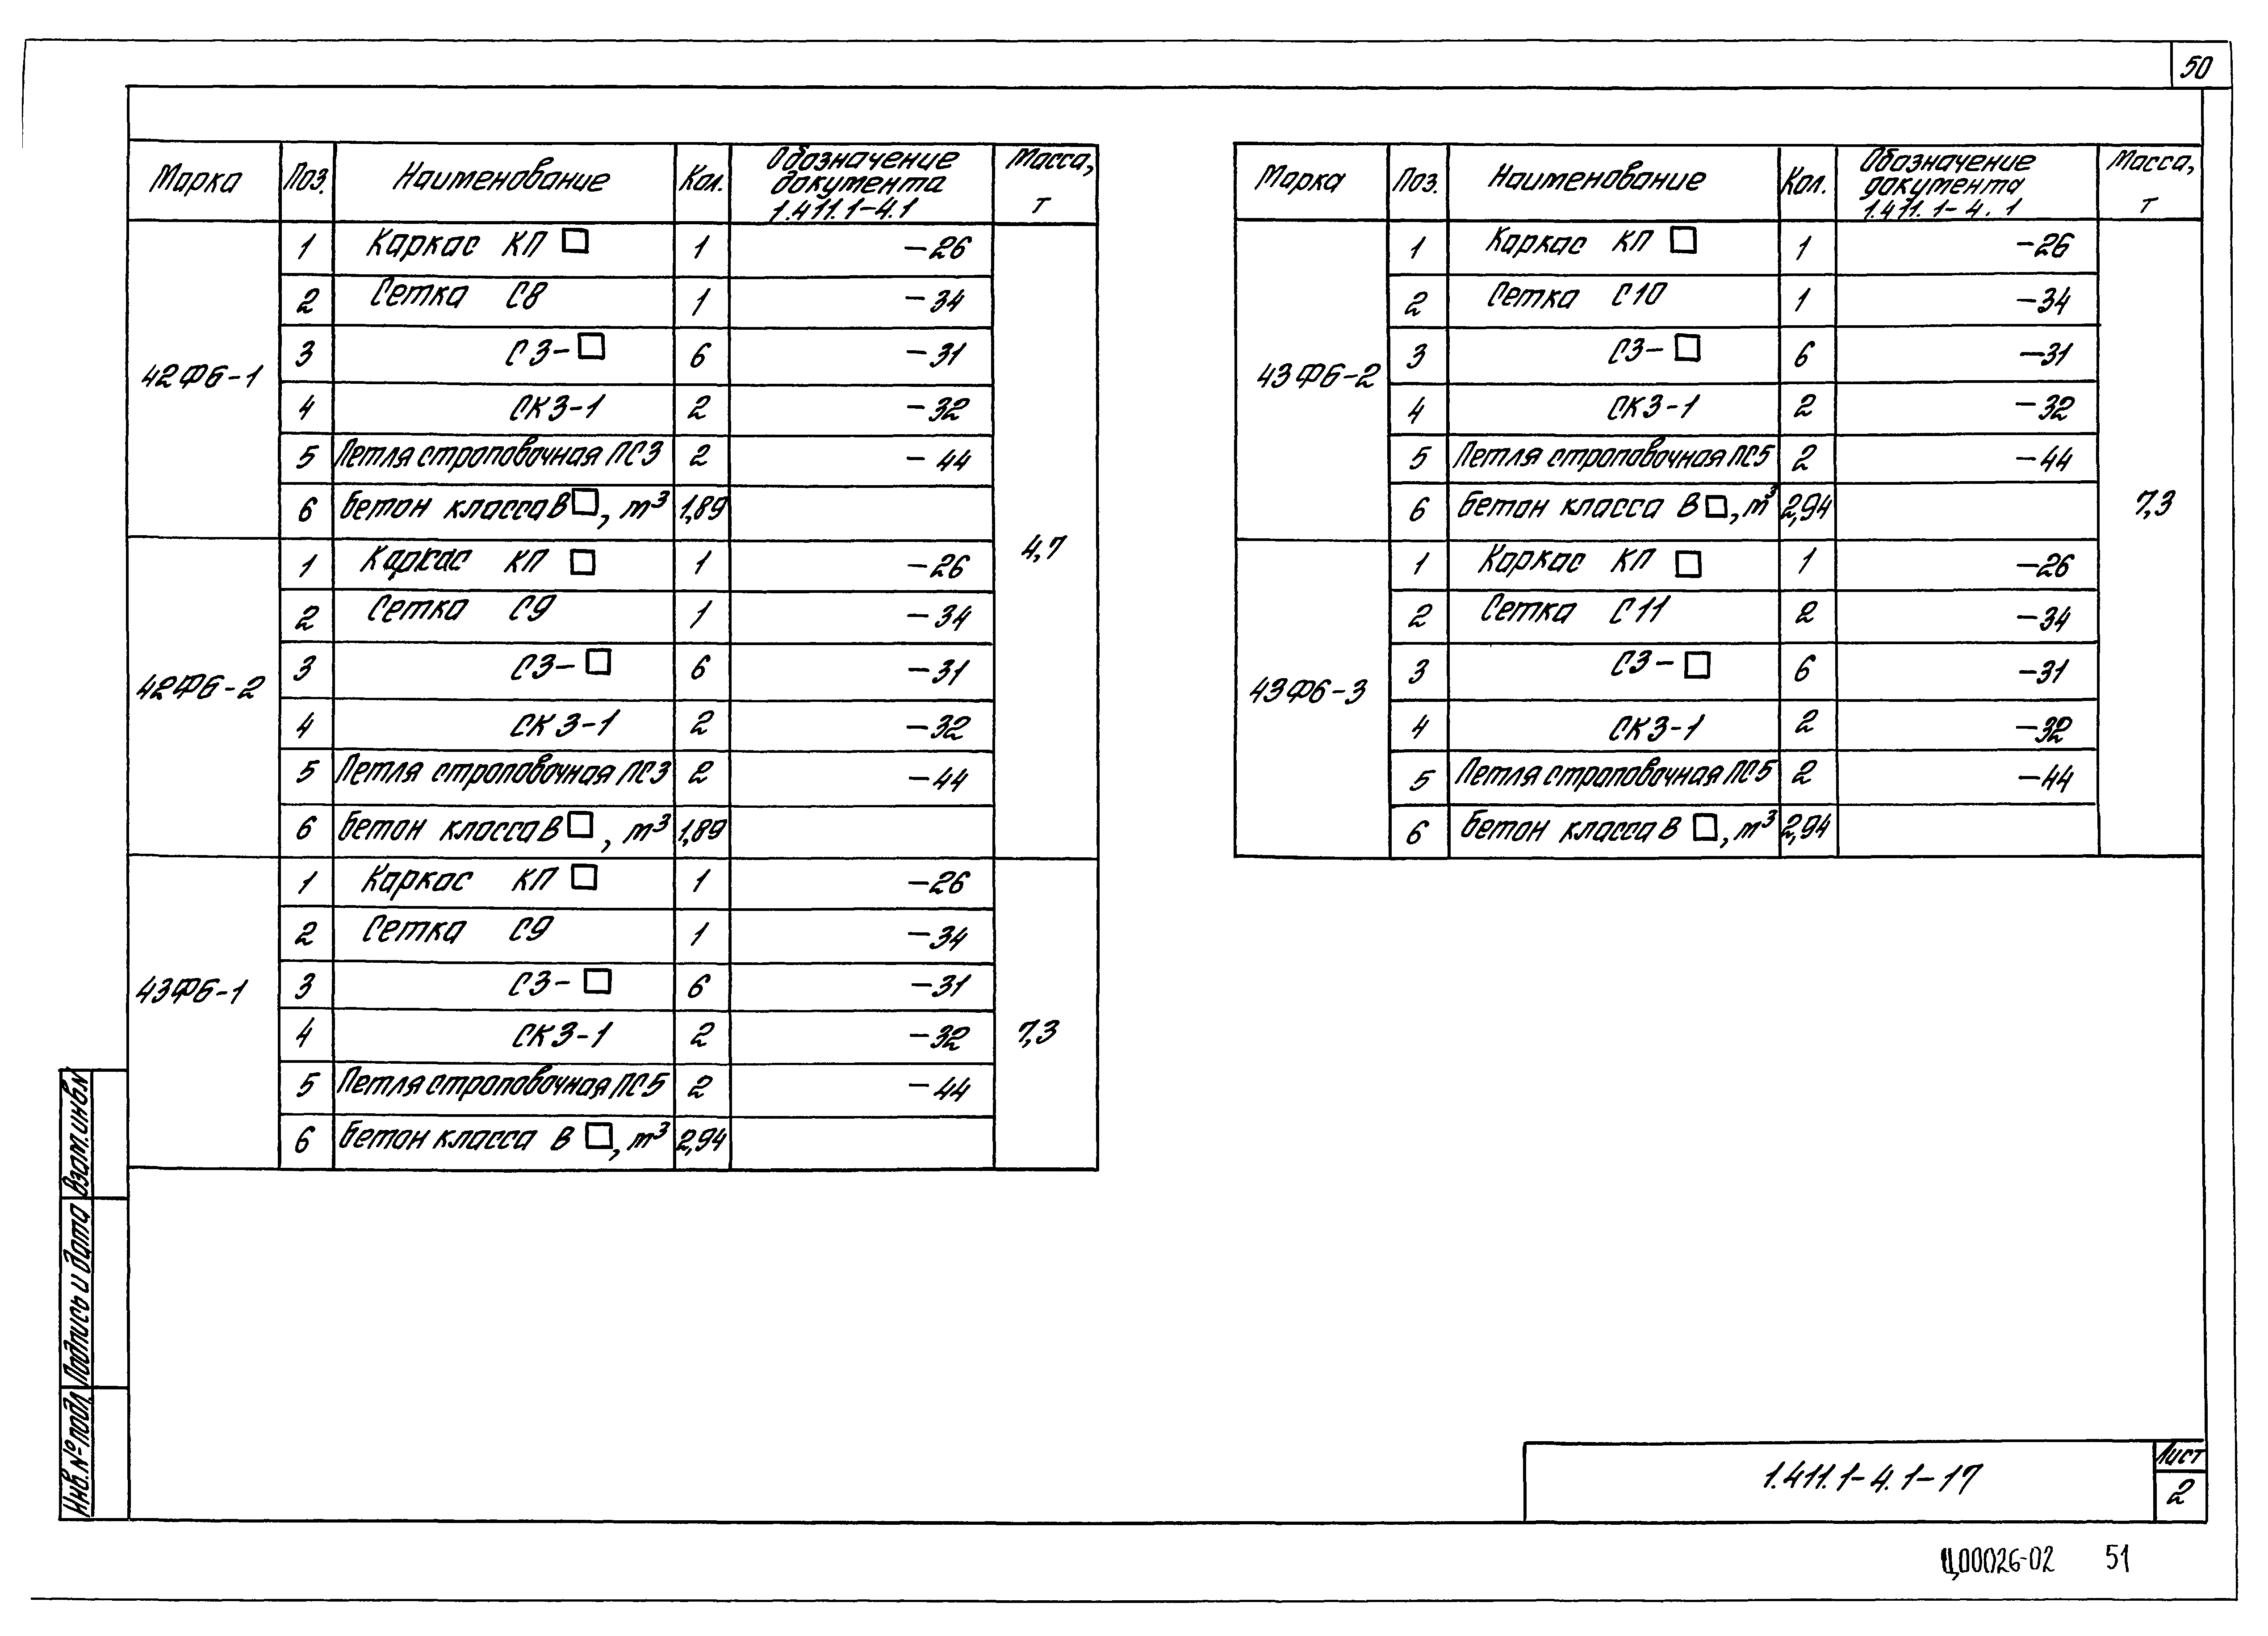 50
Марка Поз. Наименование Кол. Обозначение документа 1.411.1-4.1 Масса, т
42Ф6-1
1 Каркас КП □ 1 -26
2 Сетка С8 1 -34
3 С3-□ 6 -31
4 СК3-1 2 -32
5 Петля строповочная ПС3 2 -44
6 Бетон класса В□, м³ 1,89
4,7
42Ф6-2
1 Каркас КП □ 1 -26
2 Сетка С9 1 -34
3 С3-□ 6 -31
4 СК3-1 2 -32
5 Петля строповочная ПС3 2 -44
6 Бетон класса В□, м³ 1,89
43Ф6-1
1 Каркас КП □ 1 -26
2 Сетка С9 1 -34
3 С3-□ 6 -31
4 СК3-1 2 -32
7,3
5 Петля строповочная ПС5 2 -44
6 Бетон класса В □, м³ 2,94
Марка Поз. Наименование Кол. Обозначение документа 1.411.1-4.1 Масса, т
43Ф6-2
1 Каркас КП □ 1 -26
2 Сетка С10 1 -34
3 С3-□ 6 -31
4 СК3-1 2 -32
5 Петля строповочная ПС5 2 -44
6 Бетон класса В □, м³ 2,94
7,3
43Ф6-3
1 Каркас КП □ 1 -26
2 Сетка С11 2 -34
3 С3-□ 6 -31
4 СК3-1 2 -32
5 Петля строповочная ПС5 2 -44
6 Бетон класса В □, м³ 2,94
Взам.инв.№
Подпись и дата
Инв.№ подл.
1.411.1-4.1-17
Лист
2
Ц00026-02 51